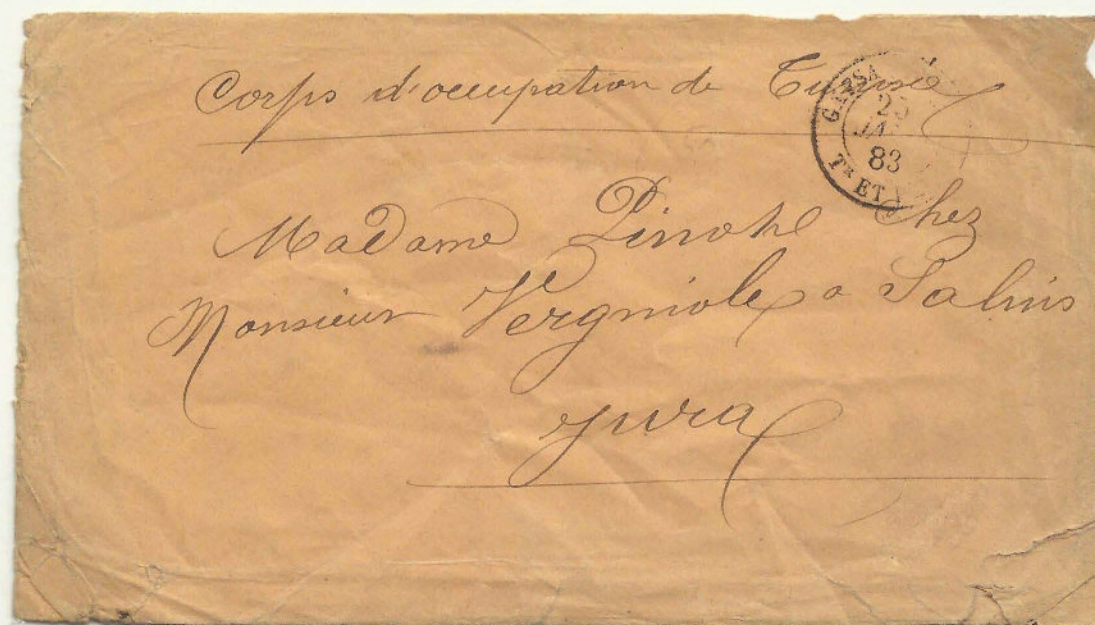 Corps d'occupation de Tunisie
GAFSA
JAN
83
TR ET
Madame chez
Monsieur Vergniole a Salins
jura